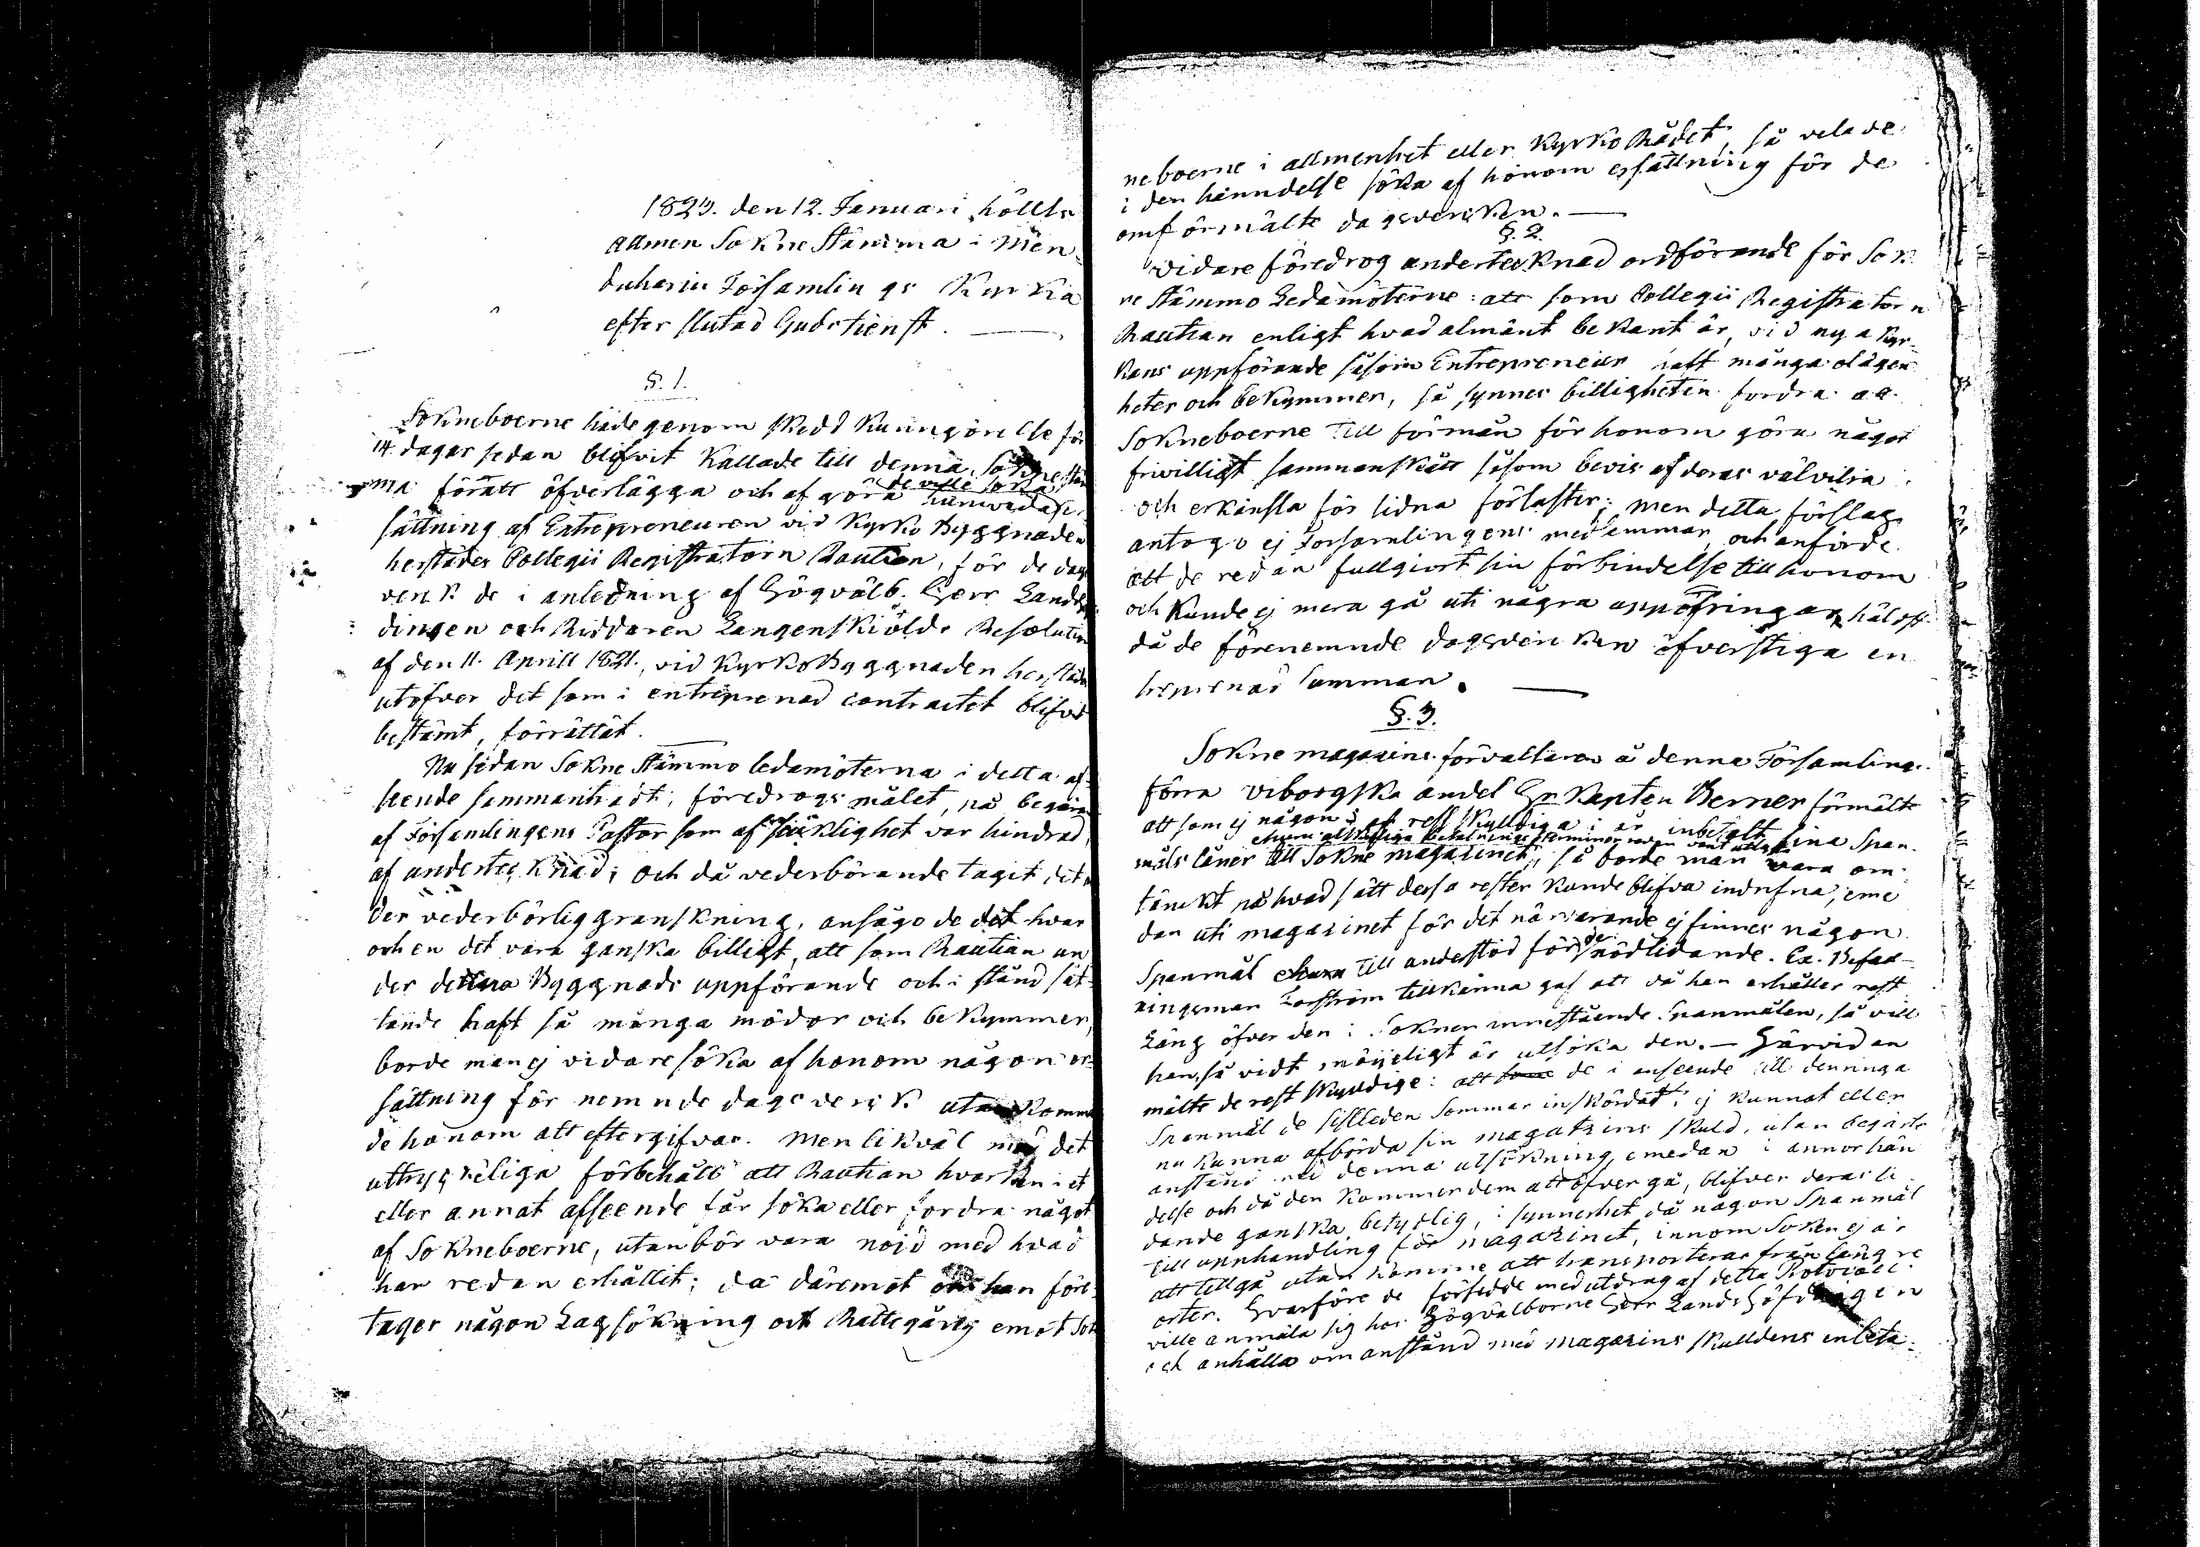 1823. den 12. Januari hölls
allmen Sokne Stämma i Män
duharju Församlings Kyrka
efter slutad Gudstienst.
§. 1.
Sokneboerne hade genom skedd Kunngörelse för
14. dagar sedan blifvit kallade till denna Soknestäm
ma föratt öfverlägga och afgöra de ville söka
sättning af Entrepreneuren vid Kyrko Byggnaden
herstädes Collegii Registratorn Rautian, för de dags
verk de i anledning af Högvälb. Herr Landshöf
dingen och Riddaren Langenskiölds Resolution
af den 11. Aprill 1821, vid KyrkoByggnaden herstädes
utöfver det som i entreprenad contractet blifvit
bestämt, förrättat.
Nu sedan Sokne Stämmo ledamöterna i detta af
seende sammanträdt, föredrogs målet, på begäran
af Församlingens Pastor som af siuklighet var hindrad,
af undertecknad; och då vederbörande tagit det un
der vederbörlig granskning, ansågo de det hvar
och en det vara ganska billigt, att som Rautian un
der denna Byggnads uppförande och i stånd sät
tande haft så många mödor och bekymmer,
borde man ej vidare söka af honom någon er
sättning för nemnde dagsverk utan komma
de honom att eftergifvas. Men likväl med det
uttryckeliga förbehåll att Rautian hvarken i et
eller annat afseende får söka eller fordra något
af Sokneboerne, utan bör vara nöjd med hvad
han redan erhållit; då däremot om han före
tager någon Lagsökning och Rättegång emot Sok
neboerne i allmenhet eller KyrkoRådet, så vela de
i den hänndelse söka af honom ersättning för de
omförmälte dagsverken.
§. 2.
Vidare föredrog undertecknad ordförande för Sok
ne Stämmo Ledamöterne: att som Collegii Registratorn
Rautian enligt hvad almänt bekant är, vid nya Kyr
kans uppförande såsom Entrepreneur haft många olägen
heter och bekymmer, så synnes billigheten fordra att
Sokneboerne till förmån för honom göra något
frivilligt sammanskått såsom bevis af deras välvilia
och erkänsla för lidna förluster; men detta förslag
antogo ej Forsamlingens medlemmar och anförde
att de redan fullgiort sin förbindelse till honom
och kunde ej mera gå uti några uppofringar, hälst
då de förenemnde dagsverken öfverstiga en
treprenad summan.
§. 3.
Sokne magazins förvaltaren å denna Församlings
förra Viborgska andel Hr Kapten Berner förmälte
att som ej någon af rest skyldiga i år inbetalt sina Span
måls låner till Sokne magazinet, så borde man vara om
tänckt på hvad sätt dessa rester kunde blifva indrifna, eme
dan uti magazinet för det närvarande ej finnes någon
Spanmål till understöd för de nödlidande. Ex. Befall
ningsman Forström tillkänna gaf att då han erhåller rest
Läng öfver den i Soknen innestående Spanmålen, så vill
han, så vidt möjeligt är utsöka den. — Härvid an
mälte de rest skyldige: att de i anseende till den ringa
Spanmål de sistleden sommar inskördat, ej kunnat eller
nu kunna afbörda sin magazins skuld, utan begärte
anstånd med denna utsökning, emedan i annor hän
delse och då den kommer dem att öfvergå, blifver deras li
dande ganska betydlig, i synnerhet då någon Spanmål
till upphandling för magazinet, innom Soknen ej är
att tillgå utan komme att transporteras från längre
orter. Hvarföre de försedde med utdrag af detta Protocoll
ville anmäla sig hos Högvälborne Herr LandsHöfdingen
och anhålla om anstånd med magazins skulldens inbeta-